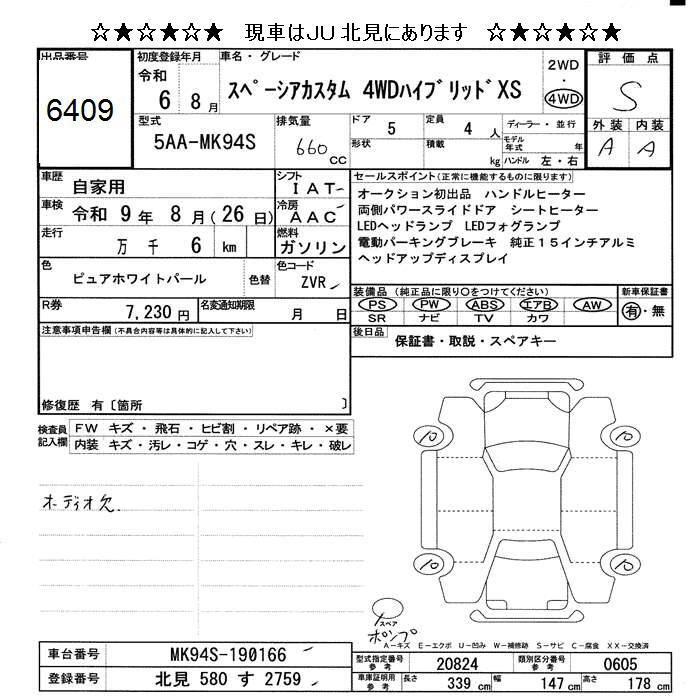 ☆★☆★☆★ 現車はJU北見にあります ☆★☆★☆★
出品番号
6409
初度登録年月
令和
6 8月
車名・グレード
スペーシアカスタム 4WDハイブリッドXS
2WD
・
4WD
評価点
S
外装 内装
A A
型式
5AA-MK94S
排気量
660
cc
ドア 5
形状
定員 4 人
積載 kg
ディーラー・並行
モデル年式 年
ハンドル 左・右
車歴 自家用
車検 令和 9年 8月(26日)
走行 万 千 6 km
シフト IAT
冷房 AAC
燃料 ガソリン
色 ピュアホワイトパール 色替
色コード ZVR
R券 7,230円
名変通知期限 月 日
セールスポイント(正常に機能するものに限ります)
オークション初出品 ハンドルヒーター
両側パワースライドドア シートヒーター
LEDヘッドランプ LEDフォグランプ
電動パーキングブレーキ 純正15インチアルミ
ヘッドアップディスプレイ
装備品(純正品に限り○をつけてください)
PS PW ABS エアB AW
SR ナビ TV カワ
新車保証書
有・無
後日品 保証書・取説・スペアキー
注意事項申告欄(不具合内容等は具体的に記入して下さい)
修復歴 有〔箇所 〕
検査員記入欄
FW キズ・飛石・ヒビ割・リペア跡・×要
内装 キズ・汚レ・コゲ・穴・スレ・キレ・破レ
オーディオ欠
10 10
10 10
スペア
ポンプ
A-キズ E-エクボ U-凹み W-補修跡 S-サビ C-腐食 XX-交換済
車台番号 MK94S-190166
登録番号 北見 580 す 2759
型式指定番号参考 20824
類別区分番号参考 0605
車庫証明用参考 長さ 339 cm 幅 147 cm 高さ 178 cm